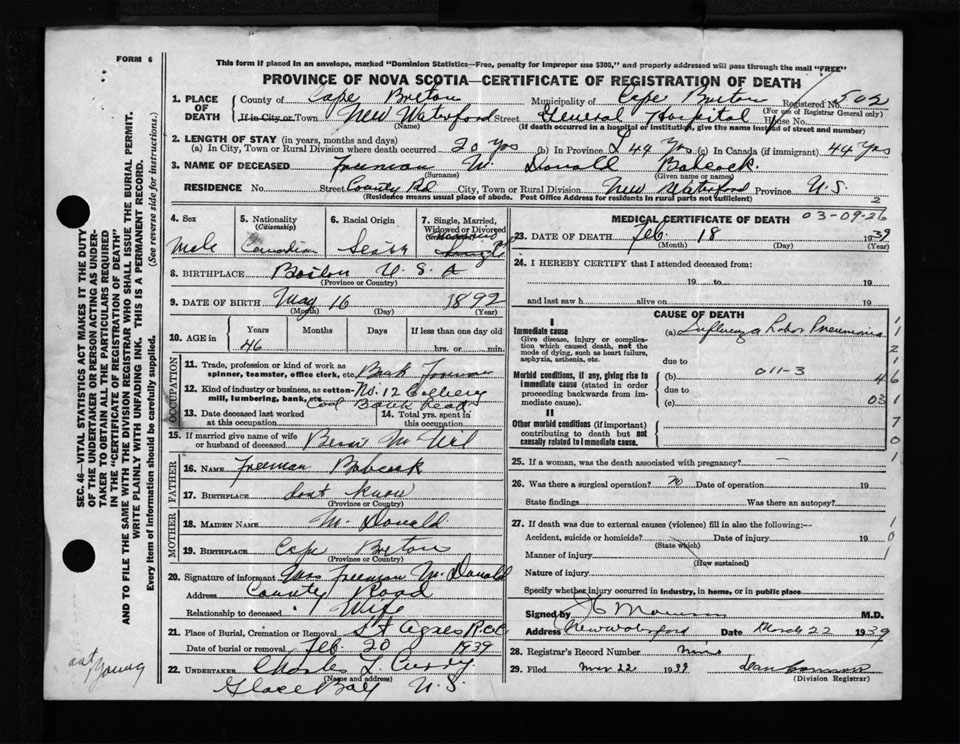 FORM 6
This form if placed in an envelope, marked "Dominion Statistics—Free, penalty for improper use $300," and properly addressed will pass through the mail "FREE"
PROVINCE OF NOVA SCOTIA—CERTIFICATE OF REGISTRATION OF DEATH
1. PLACE OF DEATH
County of Cape Breton Municipality of Cape Breton Registered No. 502
(For use of Registrar General only)
If in City or Town New Waterford Street General Hospital House No.
(Name) (If death occurred in a hospital or institution, give the name instead of street and number)
2. LENGTH OF STAY (in years, months and days)
(a) In City, Town or Rural Division where death occurred 20 Yrs (b) In Province 44 Yrs (c) In Canada (if immigrant) 44 Yrs
3. NAME OF DECEASED Freeman W. Donald Babcock
(Surname) (Given name or names)
RESIDENCE No. Street County Rd City, Town or Rural Division New Waterford Province N.S.
(Residence means usual place of abode. Post Office Address for residents in rural parts not sufficient) 2
4. Sex
Male
5. Nationality
(Citizenship)
Canadian
6. Racial Origin
7. Single, Married, Widowed or Divorced
8. BIRTHPLACE Boston U.S.A
(Province or Country)
9. DATE OF BIRTH May 16 1892
(Month) (Day) (Year)
10. AGE in
Years Months Days If less than one day old
46 hrs. or min.
OCCUPATION
11. Trade, profession or kind of work as spinner, teamster, office clerk, etc. Bank Foreman
12. Kind of industry or business, as cotton-mill, lumbering, bank, etc. No. 12 Colliery
Coal Bank Head
13. Date deceased last worked at this occupation
14. Total yrs. spent in this occupation
15. If married give name of wife or husband of deceased
FATHER
16. NAME Freeman Babcock
17. BIRTHPLACE dont know
(Province or Country)
MOTHER
18. MAIDEN NAME McDonald
19. BIRTHPLACE Cape Breton
(Province or Country)
20. Signature of informant Mrs Freeman McDonald
Address County Road
Relationship to deceased Wife
21. Place of Burial, Cremation or Removal St Agnes
Date of burial or removal Feb. 20 1939
22. UNDERTAKER Charles L. Curry
(Name and address)
Glace Bay N.S.
MEDICAL CERTIFICATE OF DEATH 03-09-26
23. DATE OF DEATH Feb. 18 1939
(Month) (Day) (Year)
24. I HEREBY CERTIFY that I attended deceased from:
19 to 19
and last saw h alive on 19
CAUSE OF DEATH
I
Immediate cause (a) Influenza Lobar Pneumonia
Give disease, injury or complication which caused death, not the mode of dying, such as heart failure, asphyxia, asthenia, etc.
due to
Morbid conditions, if any, giving rise to immediate cause (stated in order proceeding backwards from immediate cause).
(b) 011-3
due to
(c) 03
II
Other morbid conditions (if important) contributing to death but not causally related to immediate cause.
1
1
2
1
4 6
1
7
0
1
25. If a woman, was the death associated with pregnancy? —
26. Was there a surgical operation? No Date of operation 19
State findings Was there an autopsy?
27. If death was due to external causes (violence) fill in also the following:—
Accident, suicide or homicide? Date of injury 19
(State which)
Manner of injury
(How sustained)
Nature of injury
Specify whether injury occurred in industry, in home, or in public place
1
0
1
Signed by M.D.
Address New Waterford Date March 22 1939
28. Registrar's Record Number
29. Filed Mar 22 1939
(Division Registrar)
SEC. 46—VITAL STATISTICS ACT MAKES IT THE DUTY
OF THE UNDERTAKER OR PERSON ACTING AS UNDER-
TAKER TO OBTAIN ALL THE PARTICULARS REQUIRED
IN THE "CERTIFICATE OF REGISTRATION OF DEATH"
AND TO FILE THE SAME WITH THE DIVISION REGISTRAR WHO SHALL ISSUE THE BURIAL PERMIT.
WRITE PLAINLY WITH UNFADING INK. THIS IS A PERMANENT RECORD.
Every item of information should be carefully supplied. (See reverse side for instructions.)
Young